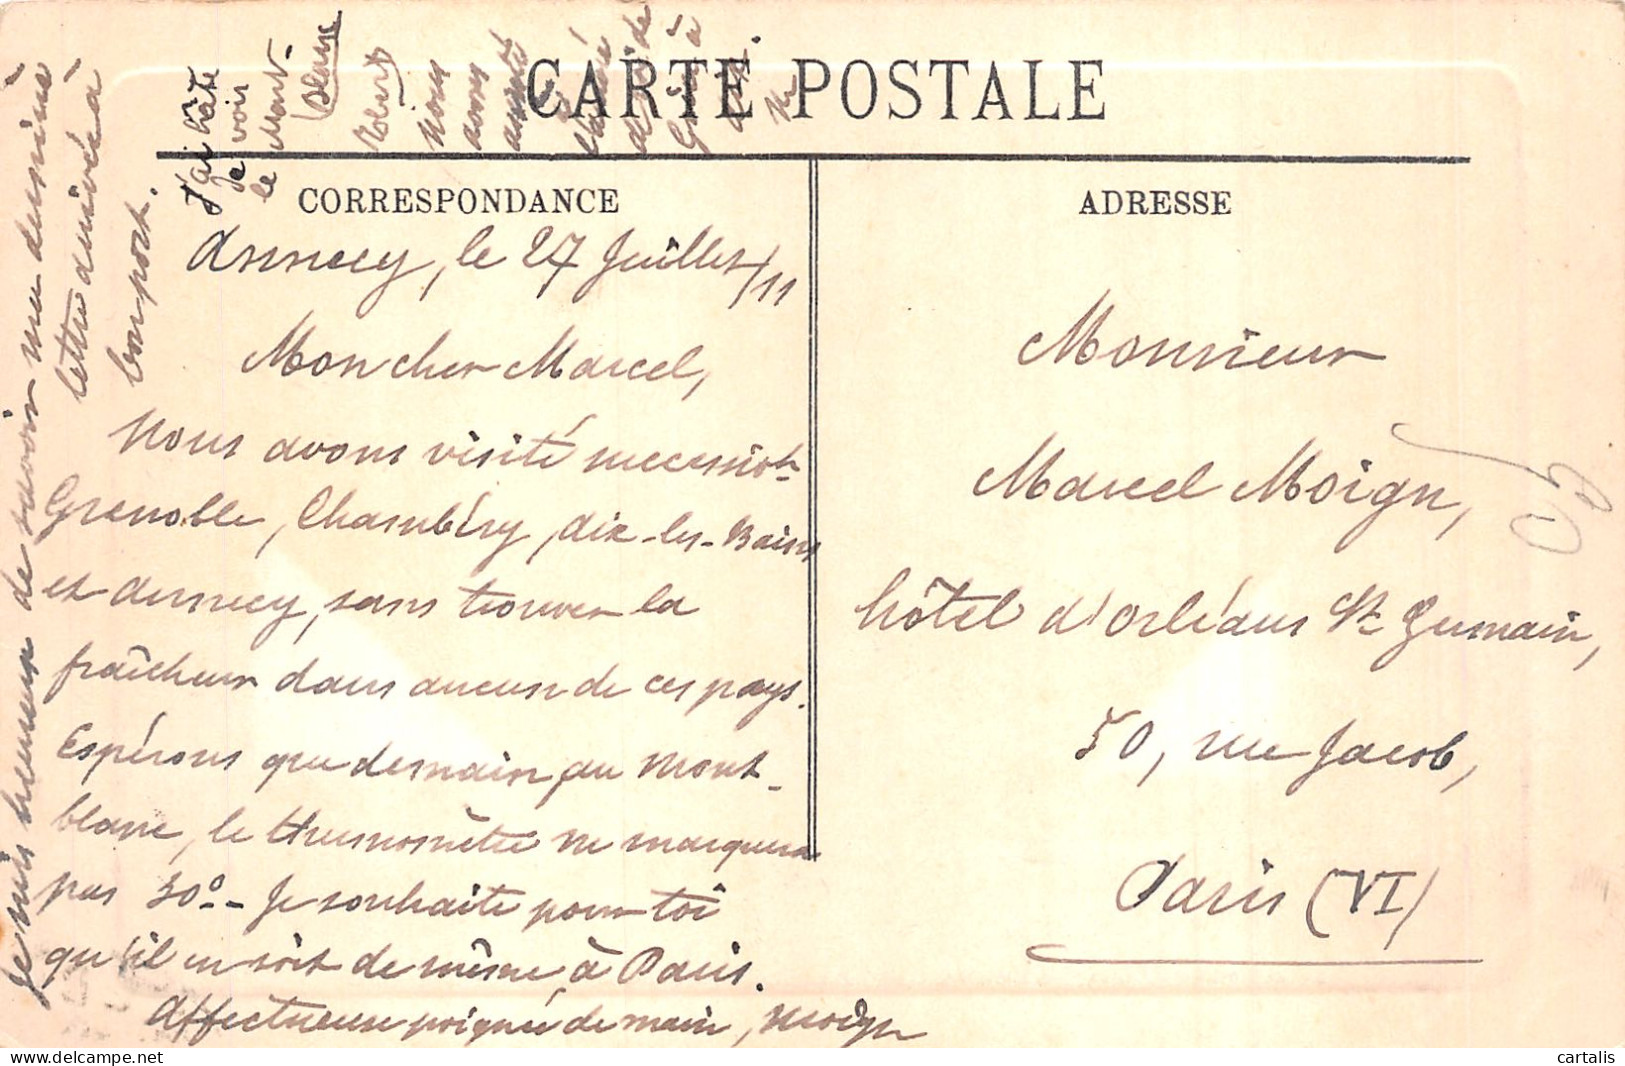 CARTE POSTALE
CORRESPONDANCE
ADRESSE
J'ai hâte
de voir
le Mont-
Blanc
Robert
Nous
avons
assisté
à
l'arrivée
du
de
à
Annecy, le 27 Juillet/11
Mon cher Marcel,
Nous avons visité successivt
Grenoble, Chambéry, Aix-les-Bains
et Annecy, sans trouver la
fraîcheur dans aucun de ces pays.
Espérons que demain, au Mont-
blanc, le thermomètre ne marquera
pas 30°- Je souhaite pour toi
qu'il en soit de même à Paris.
Affectueuse poignée de main, Moign
Je suis heureux de savoir ma dernière
lettre arrivée à
bon port.
Monsieur
Marcel Moign,
hôtel d'Orléans St Germain,
50, rue Jacob,
Paris (VI)
cartalis